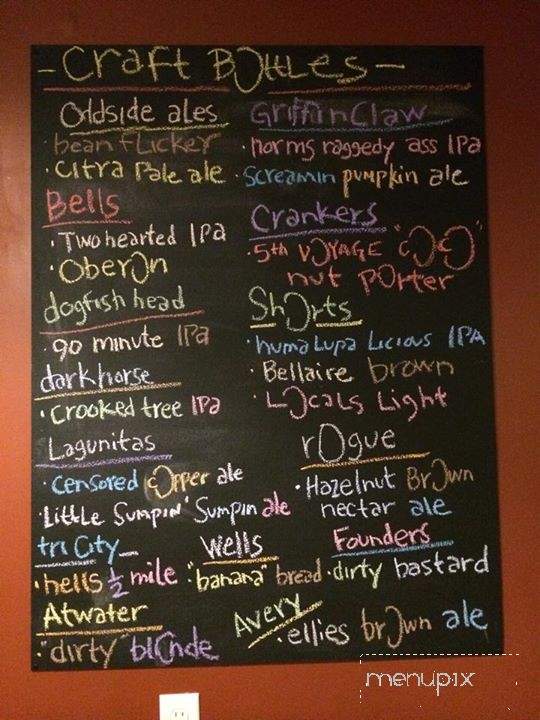 - Craft Bottles -
Oddside ales
bean flicker
· Citra Pale ale
Bells
· Two hearted IPa
· Oberon
dogfish head
· 90 minute IPa
dark horse
· Crooked tree IPa
Lagunitas
· Censored copper ale
· Little Sumpin' Sumpin ale
tri City
· hells ½ mile
Atwater
· "dirty" blonde
Griffin Claw
· norms raggedy ass IPa
· Screamin pumpkin ale
Crankers
· 5th VOYAGE "COCO"
nut porter
Shorts
· huma Lupa Licious IPA
· Bellaire brown
· Locals Light
rogue
· Hazelnut Brown
nectar ale
Wells
· "banana" bread
Founders
· dirty bastard
Avery
· ellies brown ale
menupix